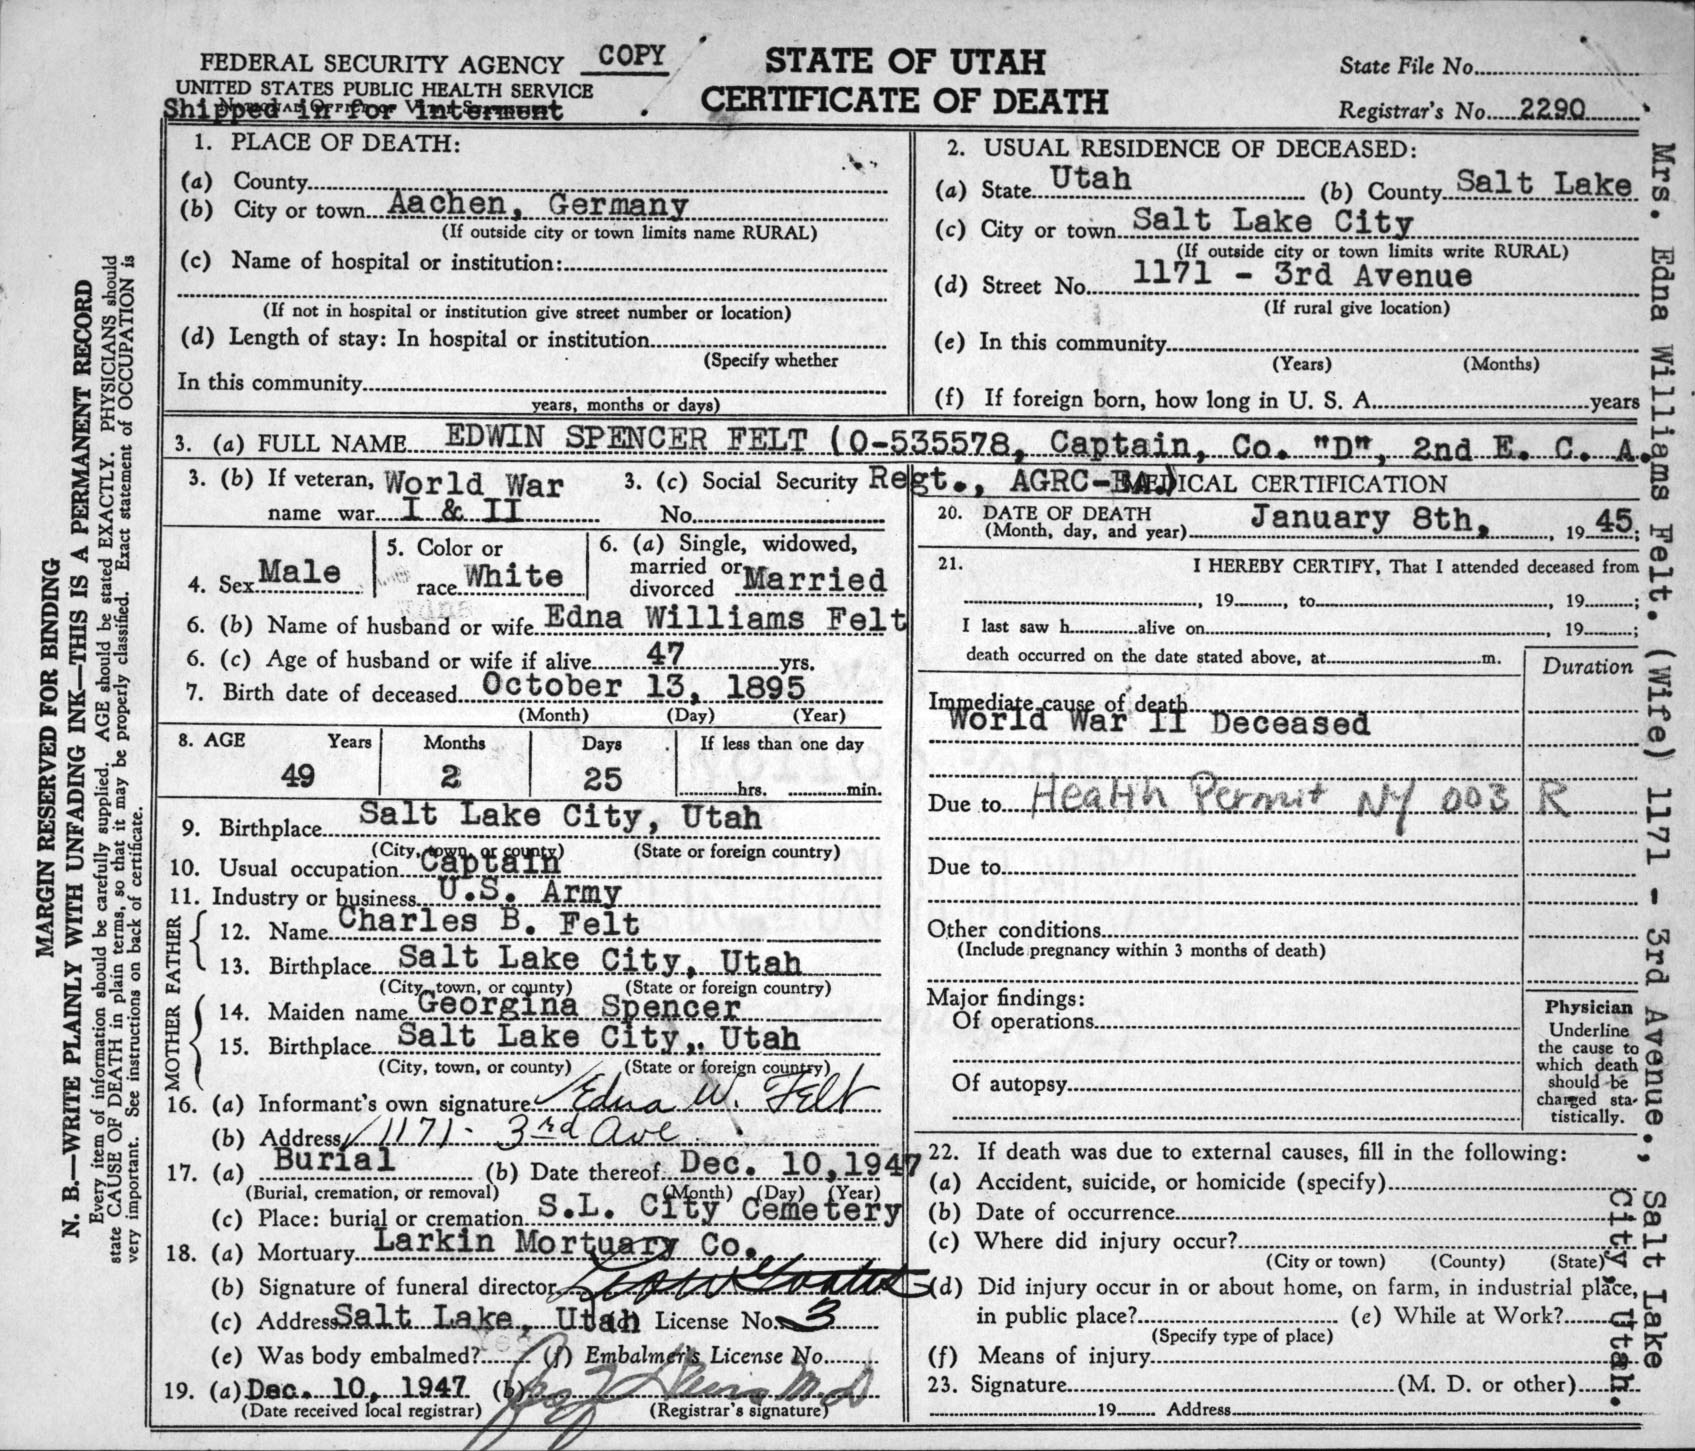 FEDERAL SECURITY AGENCY COPY
UNITED STATES PUBLIC HEALTH SERVICE
Shipped in for interment
STATE OF UTAH
CERTIFICATE OF DEATH
State File No.
Registrar's No. 2290
1. PLACE OF DEATH:
(a) County
(b) City or town Aachen, Germany
(If outside city or town limits name RURAL)
(c) Name of hospital or institution:
(If not in hospital or institution give street number or location)
(d) Length of stay: In hospital or institution
(Specify whether
In this community
years, months or days)
2. USUAL RESIDENCE OF DECEASED:
(a) State Utah (b) County Salt Lake
(c) City or town Salt Lake City
(If outside city or town limits write RURAL)
(d) Street No. 1171 - 3rd Avenue
(If rural give location)
(e) In this community
(Years) (Months)
(f) If foreign born, how long in U. S. A. years
3. (a) FULL NAME EDWIN SPENCER FELT (O-535578, Captain, Co. "D", 2nd E. C. A.
Regt., AGRC-EA.)
3. (b) If veteran, World War
name war I & II
3. (c) Social Security
No.
4. Sex Male
5. Color or
race White
6. (a) Single, widowed,
married or
divorced Married
6. (b) Name of husband or wife Edna Williams Felt
6. (c) Age of husband or wife if alive 47 yrs.
7. Birth date of deceased October 13, 1895
(Month) (Day) (Year)
8. AGE Years Months Days If less than one day
49 2 25 hrs. min.
9. Birthplace Salt Lake City, Utah
(City, town, or county) (State or foreign country)
10. Usual occupation Captain
11. Industry or business U.S. Army
FATHER
12. Name Charles B. Felt
13. Birthplace Salt Lake City, Utah
(City, town, or county) (State or foreign country)
MOTHER
14. Maiden name Georgina Spencer
15. Birthplace Salt Lake City, Utah
(City, town, or county) (State or foreign country)
16. (a) Informant's own signature Edna W. Felt
(b) Address 1171 - 3rd Ave
17. (a) Burial (b) Date thereof Dec. 10, 1947
(Burial, cremation, or removal) (Month) (Day) (Year)
(c) Place: burial or cremation S.L. City Cemetery
18. (a) Mortuary Larkin Mortuary Co.
(b) Signature of funeral director
(c) Address Salt Lake, Utah License No. 3
(e) Was body embalmed? (f) Embalmer's License No.
19. (a) Dec. 10, 1947 (b)
(Date received local registrar) (Registrar's signature)
MEDICAL CERTIFICATION
20. DATE OF DEATH
(Month, day, and year) January 8th, , 19 45;
21. I HEREBY CERTIFY, That I attended deceased from
, 19 , to , 19 ;
I last saw h alive on , 19 ;
death occurred on the date stated above, at m.
Duration
Immediate cause of death
World War II Deceased
Due to Health Permit NY 003 R
Due to
Other conditions
(Include pregnancy within 3 months of death)
Major findings:
Of operations
Of autopsy
Physician
Underline
the cause to
which death
should be
charged sta-
tistically.
22. If death was due to external causes, fill in the following:
(a) Accident, suicide, or homicide (specify)
(b) Date of occurrence
(c) Where did injury occur?
(City or town) (County) (State)
(d) Did injury occur in or about home, on farm, in industrial place,
in public place? (e) While at Work?
(Specify type of place)
(f) Means of injury
23. Signature (M. D. or other)
19 Address
MARGIN RESERVED FOR BINDING
N. B.—WRITE PLAINLY WITH UNFADING INK—THIS IS A PERMANENT RECORD
Every item of information should be carefully supplied. AGE should be stated EXACTLY. PHYSICIANS should
state CAUSE OF DEATH in plain terms, so that it may be properly classified. Exact statement of OCCUPATION is
very important. See instructions on back of certificate.
Mrs. Edna Williams Felt. (Wife) 1171 - 3rd Avenue, Salt Lake
City, Utah.